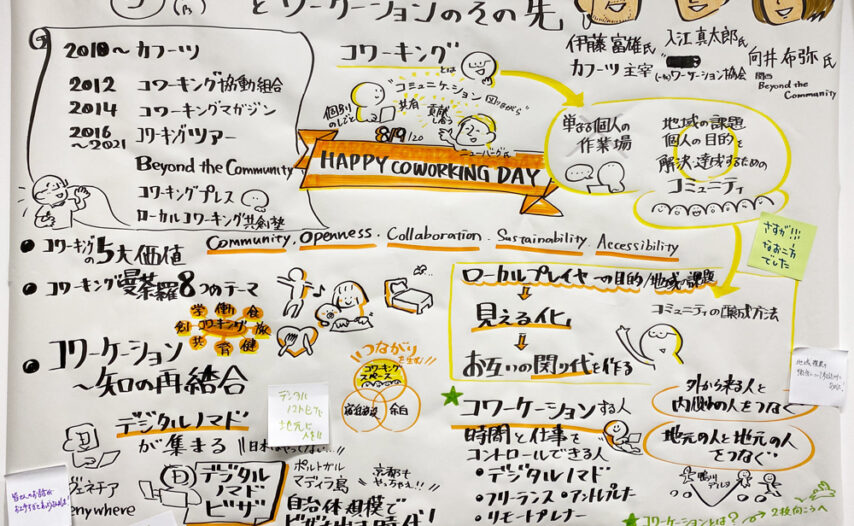 とワーケーションのその先
伊藤富雄氏
カフーツ主宰
入江真太郎氏
(一社)ワーケーション協会
向井布弥氏
関西
Beyond the
Community
2010〜 カフーツ
2012 コワーキング協働組合
2014 コワーキングマガジン
2016〜2021 コワーキングツアー
Beyond the Community
コワーキングプレス
ローカルコワーキング共創塾
コワーキング
とは
"コミュニケーション
図りながら"
個別の
しごと
共有
貢献
しあう
8/9/20
HAPPY COWORKING DAY
単なる個人の
作業場
地域の課題
個人の目的を
解決・達成するための
コミュニティ
さすが!!!
なおこ方
でした
コワーキングの5大価値
Community. Openness. Collaboration. Sustainability. Accessibility
コワーキング曼荼羅8つのテーマ
学 働 食
創 コワーキング 旅
共 育 健
ローカルプレイヤーの目的/地域の課題
見える化
お互いの関り代を作る
コミュニティの醸成方法
コワーケーション
〜知の再結合
"つながり
を生む"
コワーキング
スペース
余白
デジタルノマド
が集まる
デジタル
ノマド
ビザ
ヴェネチア
enywhere
ポルトガル
マディラ島
京都も
やっちゃえ!!
自治体規模で
ビザを出す時代!
コワーケーションする人
時間と仕事を
コントロールできる人
・デジタルノマド
・フリーランス・アントレプレナー
・リモートプレナー
外から来る人と
内側の人をつなぐ
地元の人と地元の人
をつなぐ
コワーケーションとは?
2枚向こうへ